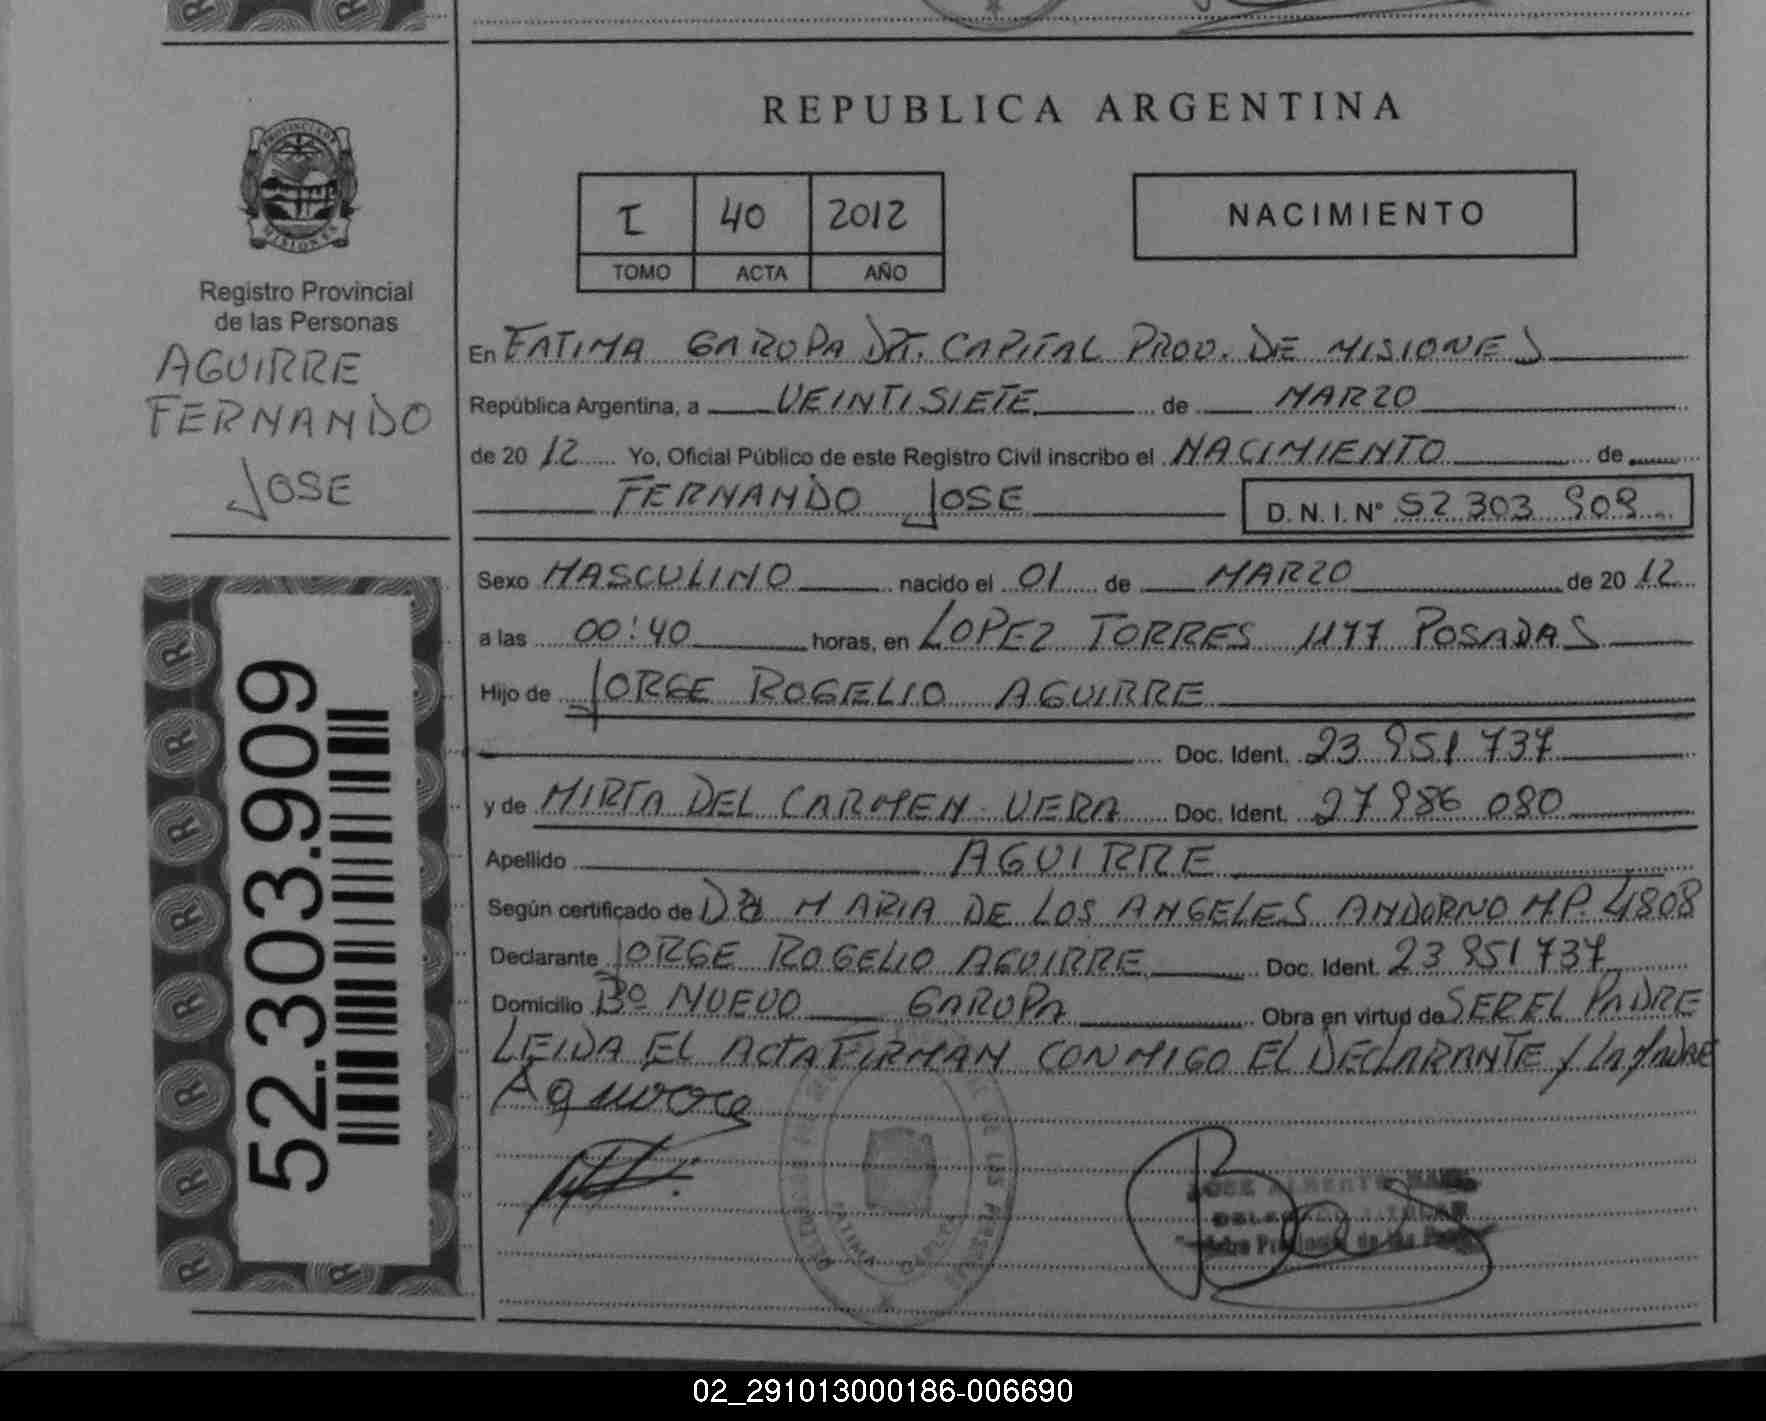 REPUBLICA ARGENTINA
PROVINCIA DE MISIONES
Registro Provincial
de las Personas
AGUIRRE
FERNANDO
JOSE
52.303.909
I 40 2012
TOMO ACTA AÑO
NACIMIENTO
En FATIMA GARUPA DPT. CAPITAL PROV. DE MISIONES
República Argentina, a VEINTISIETE de MARZO
de 2012 Yo, Oficial Público de este Registro Civil inscribo el NACIMIENTO de
FERNANDO JOSE D.N.I. Nº 52 303 909
Sexo MASCULINO nacido el 01 de MARZO de 2012
a las 00:40 horas, en LOPEZ TORRES 1177 POSADAS
Hijo de JORGE ROGELIO AGUIRRE
Doc. Ident. 23 951 737
y de MIRTA DEL CARMEN VERA Doc. Ident. 27 986 080
Apellido AGUIRRE
Según certificado de DRA MARIA DE LOS ANGELES ANDORNO M.P. 4808
Declarante JORGE ROGELIO AGUIRRE Doc. Ident. 23 951 737
Domicilio Bº NUEVO GARUPA Obra en virtud de SER EL PADRE
LEIDA EL ACTA FIRMAN CONMIGO EL DECLARANTE Y LA MADRE
JOSE ALBERTO
02_291013000186-006690